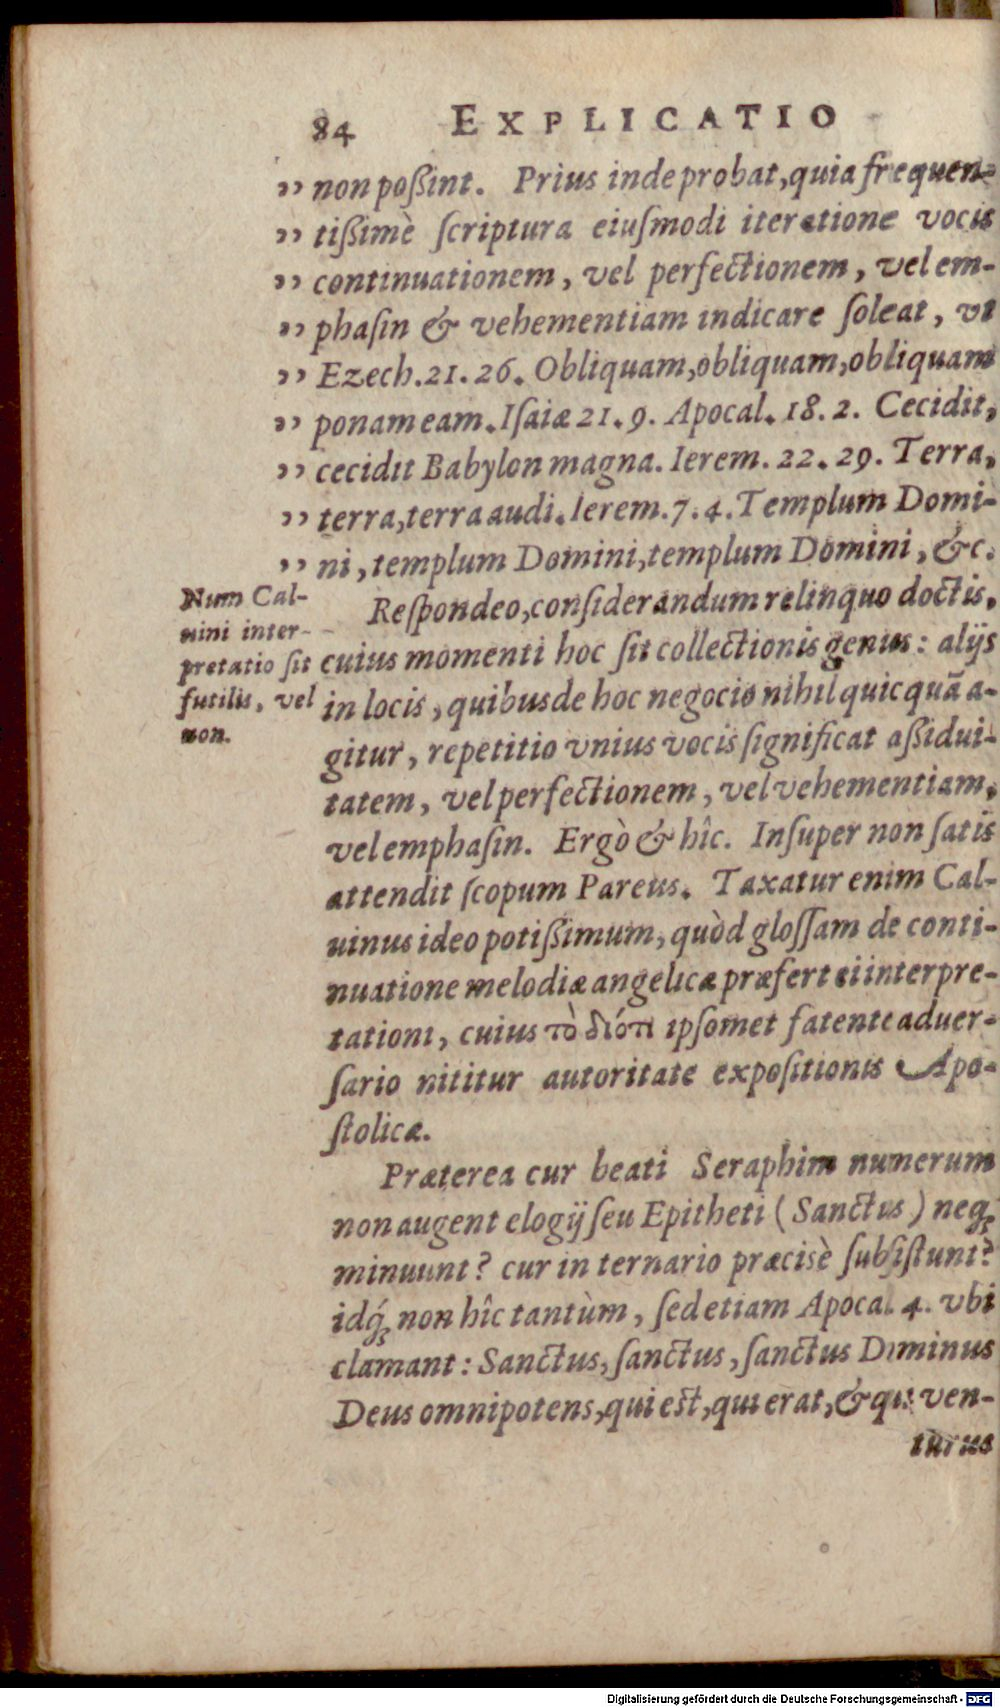 84 EXPLICATIO
„ non poßint. Prius inde probat, quia frequen-
„ tißimè ſcriptura eiuſmodi iteratione vocis
„ continuationem, vel perfectionem, vel em-
„ phaſin & vehementiam indicare ſoleat, vt
„ Ezech. 21. 26. Obliquam, obliquam, obliquam
„ ponam eam. Iſaiæ 21. 9. Apocal. 18. 2. Cecidit,
„ cecidit Babylon magna. Ierem. 22. 29. Terra,
„ terra, terra audi. Ierem. 7. 4. Templum Domi-
„ ni, templum Domini, templum Domini, &c.
Num Cal-
uini inter-
pretatio ſit
futilis, vel
non.
Reſpondeo, conſiderandum relinquo doctis,
cuius momenti hoc ſit collectionis genus: alijs
in locis, quibus de hoc negocio nihil quicquã a-
gitur, repetitio vnius vocis ſignificat aßidui-
tatem, vel perfectionem, vel vehementiam,
vel emphaſin. Ergò & hîc. Inſuper non ſatis
attendit ſcopum Pareus. Taxatur enim Cal-
uinus ideo potißimum, quòd gloſſam de conti-
nuatione melodiæ angelicæ præfert ei interpre-
tationi, cuius τὸ διότι ipſomet fatente aduer-
ſario nititur autoritate expoſitionis Apo-
ſtolicæ.
Præterea cur beati Seraphim numerum
non augent elogij ſeu Epitheti (Sanctus) neq;
minuunt? cur in ternario præcisè ſubſiſtunt?
idq́; non hîc tantùm, ſed etiam Apocal. 4. vbi
clamant: Sanctus, ſanctus, ſanctus Dominus
Deus omnipotens, qui est, qui erat, & qui ven-
turus
Digitalisierung gefördert durch die Deutsche Forschungsgemeinschaft - DFG